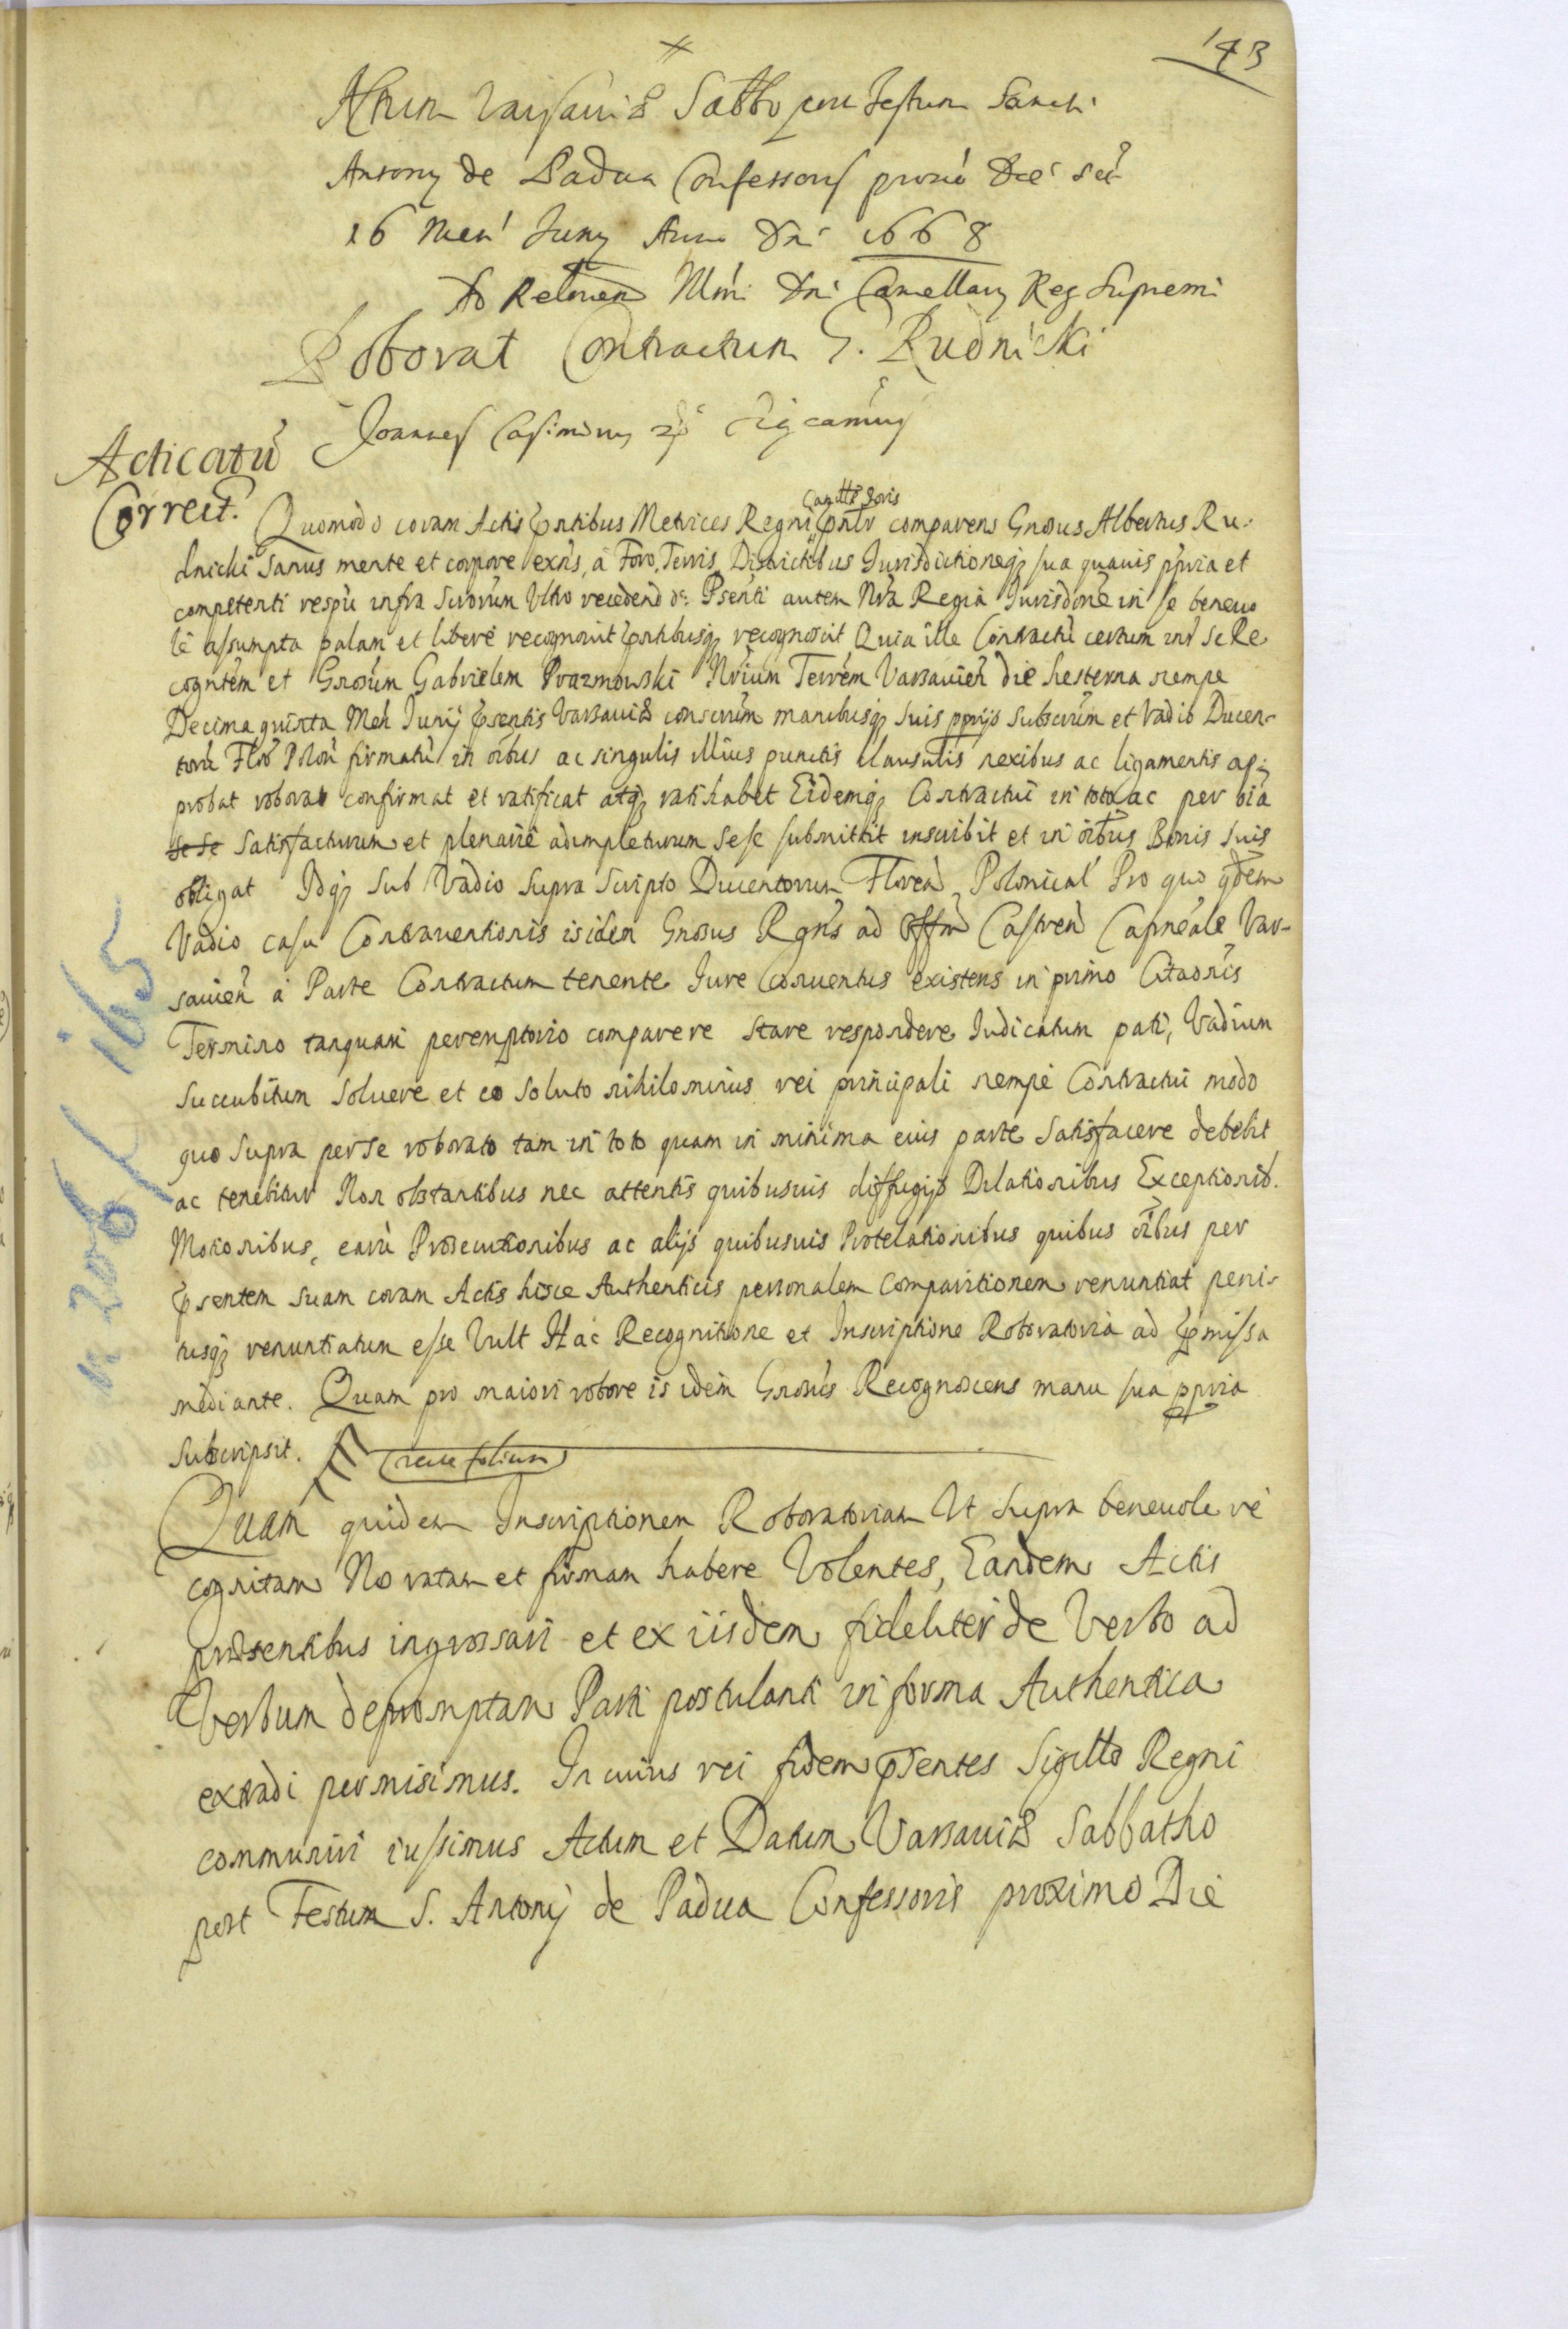 143
Actum Varsauiæ Sabbo post Festum Sancti
Antony de Padua Confessoris proxio Die scil
16 Men Juny Anno Dni 1668
Ad Relonem Illmi Dni Cancellary Reg Supremi
Roborat Contractum G. Rudnicki
Joannes Casimirus
Acticatũ
Correct.
Cancellæ Joris
Quomodo coram Actis pñtibus Metrices Regni pñlr comparens Gnosus Albertus Ru-
dnicki sanus mente et corpore exñs, à Foro, Terris, Districtibus Jurisdictioneq sua quauis ppria et
competenti respũ infra Scrorum Vltro recedend ds. Psenti autem Nra Regia Jurisdone in se beneuo
le assumpta palam et libere recognouit pñtibusq recognoscit Quia ille Contractũ certum inr se Re
cogntem et Gnosum Gabrielem Prazmowski Nrium Terrem Varsauień die hesterna nempe
Decima quinta Meń Junij psentis Varsauiæ conscrum manibusq suis pprijs subscrum et Vadio Ducen-
torũ Flor Polon firmatũ in oibus ac singulis illius punctis clausulis nexibus ac ligamentis ap-
probat roborat confirmat et ratificat atq ratihabet Eidemq Contractui in toto ac per oia
se se satisfacturum et plenarie adimpleturum sese submittit inscribit et in oibus Bonis suis
obligat Idq sub Vadio supra scripto Ducentorum Floren Polonical Pro quo qdem
Vadio casu Contrauentionis is idem Gnosus Rgns ad Offm Castren Capneale Var-
sauien à Parte Contractum tenente Jure Conuentus existens in primo Citaonis
Termino tanquam peremptorio comparere stare respondere Judicatum pati, Vadium
succubitum soluere et eo soluto nihilominus rei principali nempe Contractui modo
quo supra per se roborato tam in toto quam in minima eius parte satisfacere debebit
ac tenebitur Non obstantibus nec attentis quibusuis diffugijs Dilationibus Exceptionib.
Motionibus, earũ Prosecutionibus ac alijs quibusuis Protelationibus quibus oibus per
psentem suam coram Actis hisce Authenticis personalem Comparitionem renuntiat peni-
tusq renuntiatum esse Vult Hac Recognitione et Inscriptione Roboratoria ad pmissa
mediante. Quam pro maiori robore is idem Gnosus Recognoscens manu sua ppria
subscripsit.
Quam quidem Inscriptionem Roboratoriam Ut supra beneuole re
cognitam No ratam et firmam habere Volentes, Eandem Actis
præsentibus ingrossari et ex iisdem fideliter de Verbo ad
Verbum depromptam Parti postulanti in forma Authentica
extradi permisimus. In cuius rei fidem psentes Sigillo Regni
communiri iussimus Actum et Datum Varsauiæ Sabbatho
post Festum S. Antonij de Padua Confessoris proximo Die